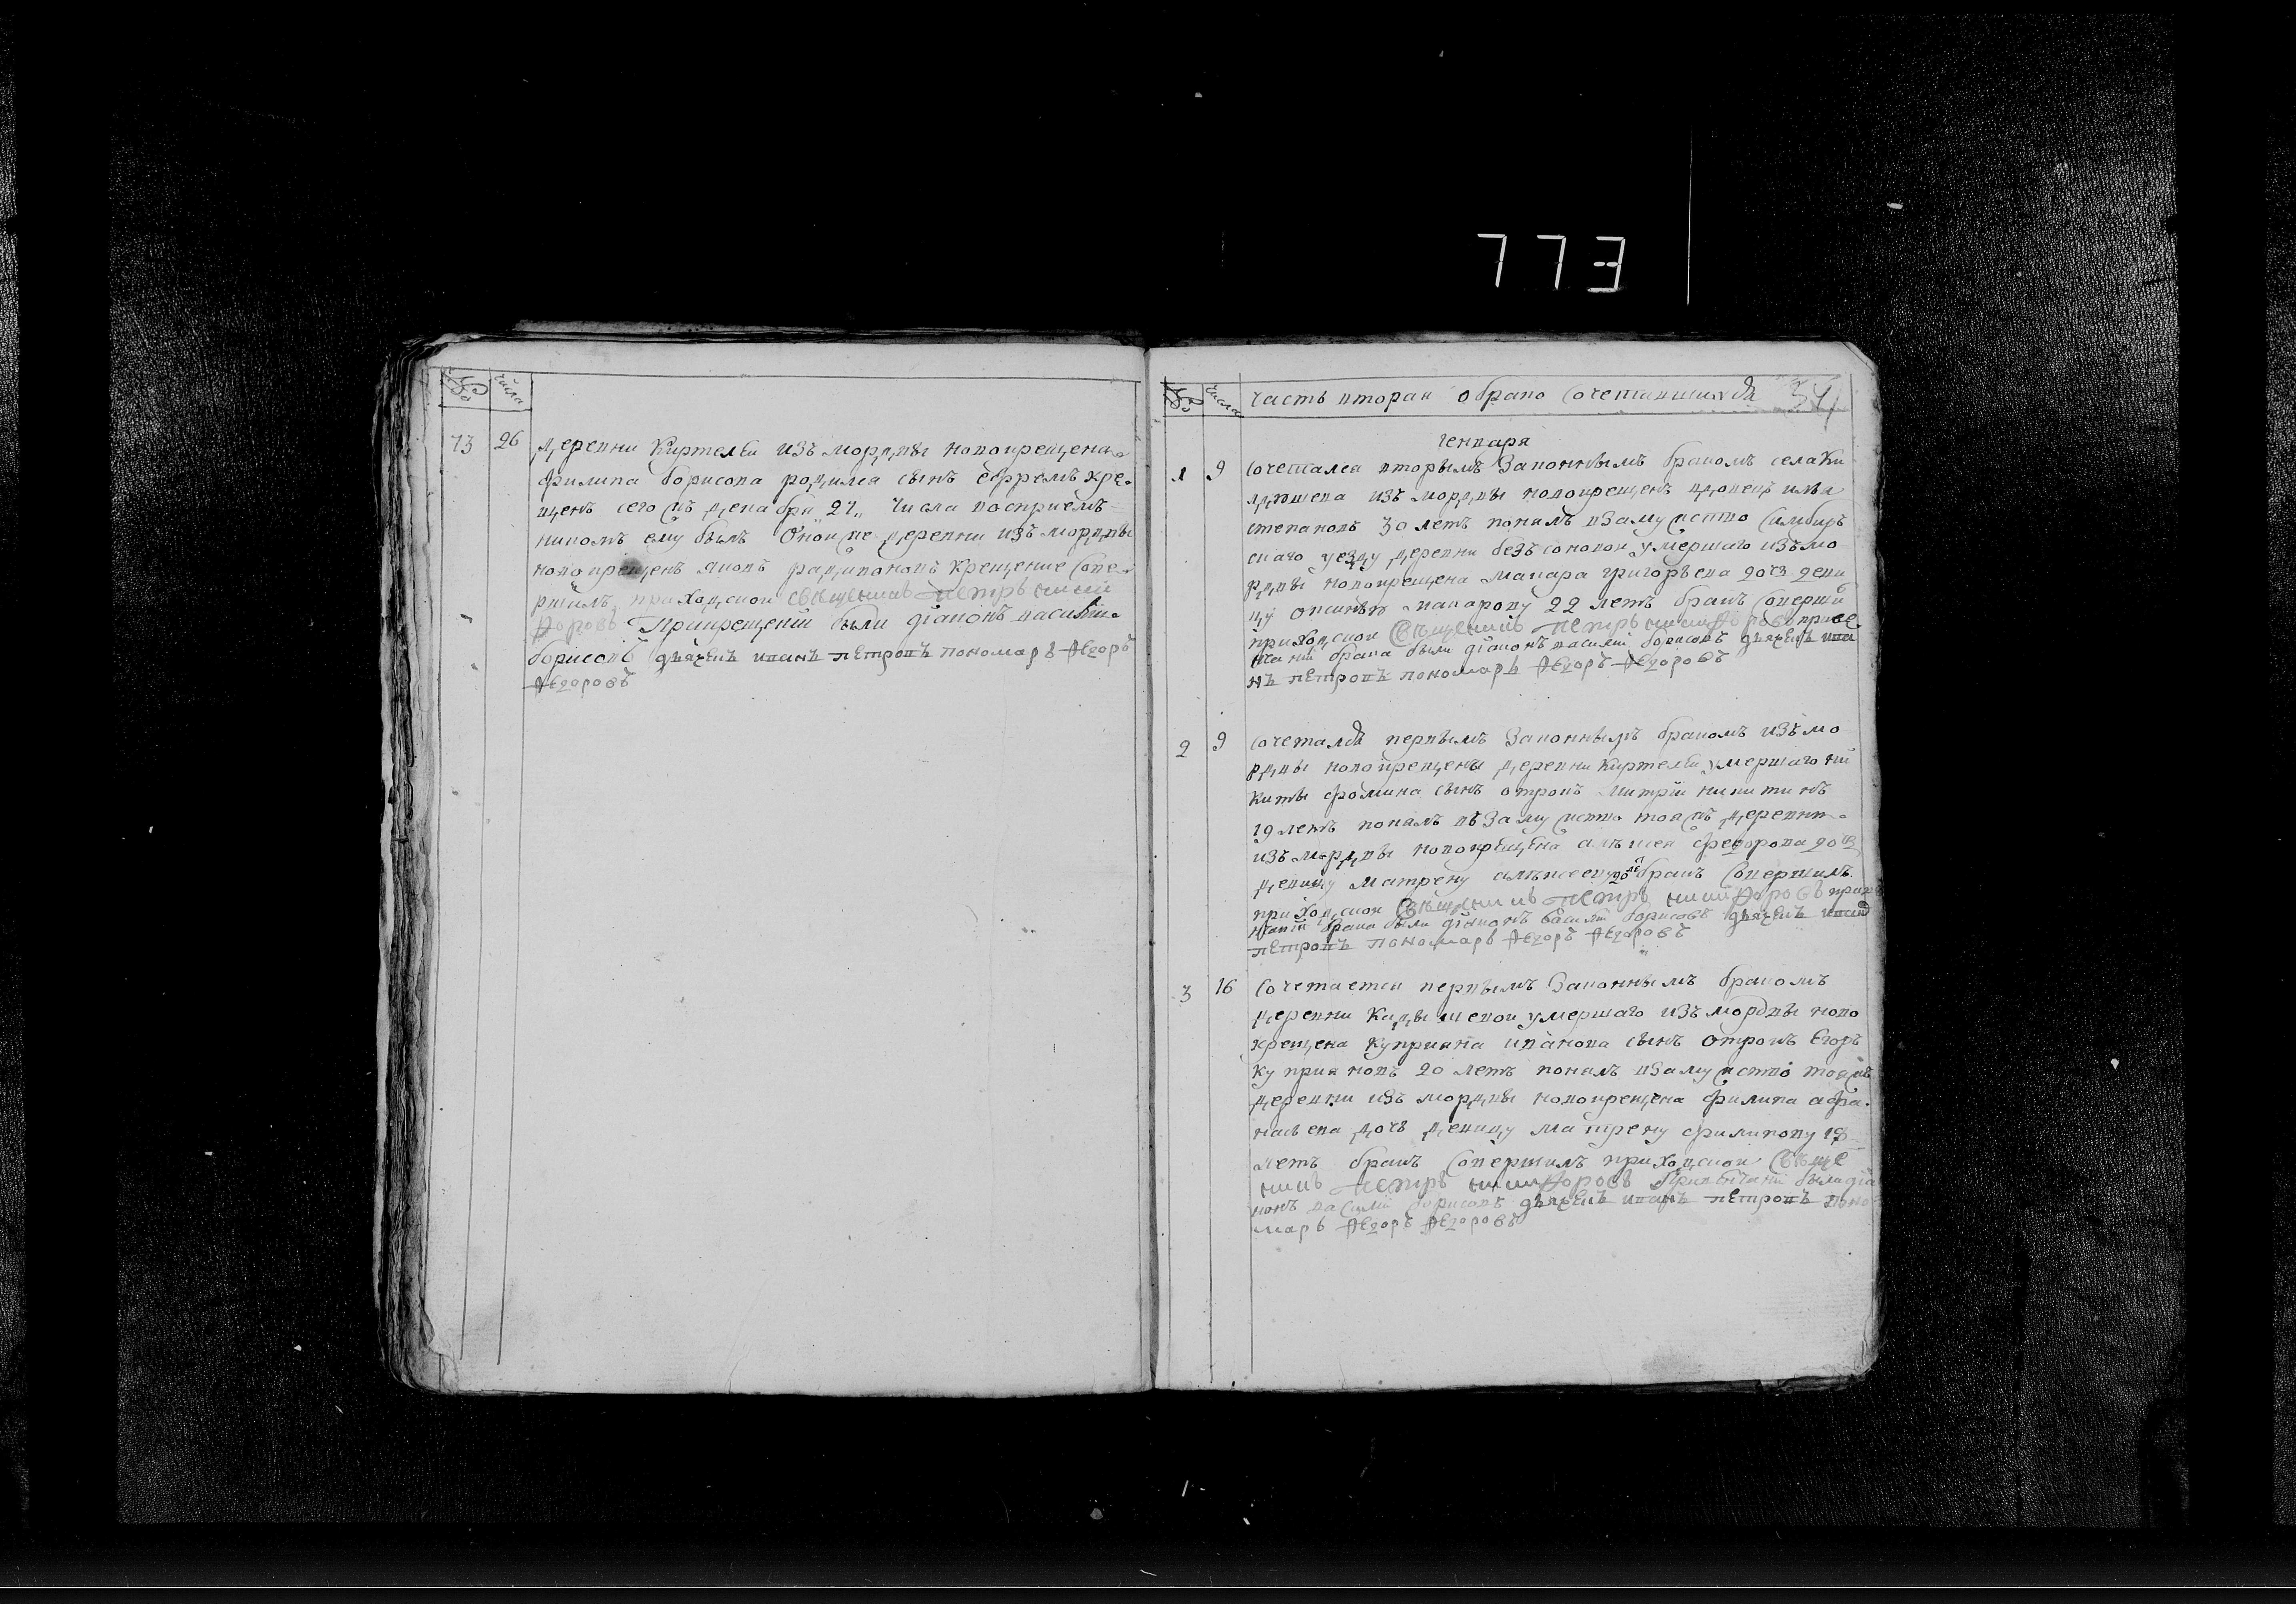 773
№ числа
73 26 деревни Киртели изъ мордвы новокрещена
филипа борисова родился сынъ ефремъ кре-
щенъ сего жъ декабря 27 числа восприем-
никомъ ему былъ Оной же деревни изъ мордвы
новокрещенъ яковъ радивоновъ крещение сове-
ршилъ приходской священникъ петръ ники
форовъ При крещении были дїаконъ василий
борисовъ дьячекъ иванъ петровъ пономарь Федоръ
Федоровъ
№ числа часть вторая о брако сочетавшихся 34
генваря
1 9 сочетался вторымъ законнымъ бракомъ села Ки
изъ мордвы новокрещенъ вдовецъ илья
степановъ 30 летъ понялъ взамужство симбир
скаго уезду деревни безъсоновки умершаго изъ мо
рдвы новокрещена макара григорьева дочь деви
цу макарову 22 летъ бракъ соверши
приходской священникъ петръ никифоровъ при ве
чании брака были дїаконъ василий борисовъ дьячекъ ива
нъ петровъ пономарь Федоръ Федоровъ
2 9 сочетался первымъ законнымъ бракомъ изъ мо
рдвы новокрещены деревни Киртели умершаго ни
киты фомина сынъ отрокъ митрїй никитинъ
19 летъ понялъ въ замужство тояжъ деревни
изъ мордвы новокрещена алексея федорова дочь
девицу матрену алексееву бракъ совершилъ
приходской священникъ петръ никифоровъ при ве
чании брака были дїаконъ василий борисовъ дьячекъ иванъ
петровъ пономарь Федоръ Федоровъ
3 16 Сочетается первымъ законнымъ бракомъ
деревни умершаго изъ мордвы ново
крещена куприяна иванова сынъ отрокъ Егоръ
куприяновъ 20 летъ понялъ взамужство тояжъ
деревни изъ мордвы новокрещена филипа афа-
насьева дочь девицу матрену филипову 18
летъ бракъ совершилъ приходской свяще
никъ петръ никифоровъ При венчании были дїа
конъ василий борисовъ дьячекъ иванъ петровъ поно
марь Федоръ Федоровъ